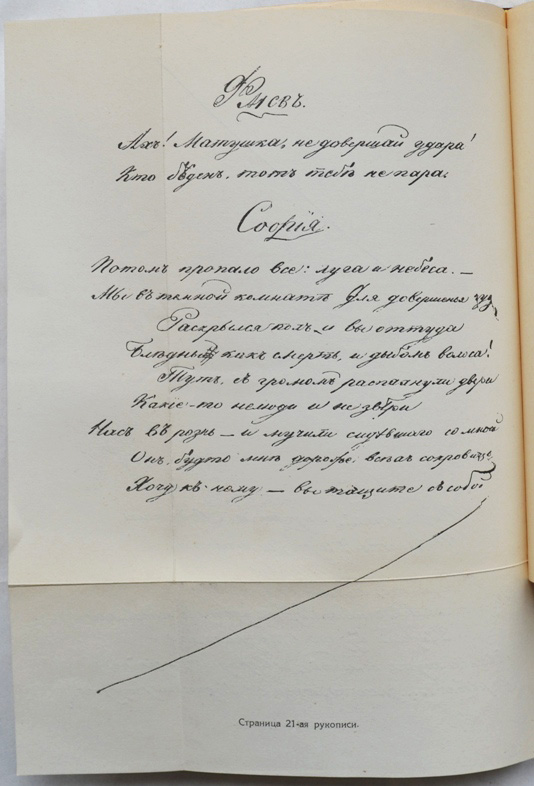 Фамусовъ.
Ахъ! Матушка, не довершай удара!
Кто бѣденъ, тотъ тебѣ не пара.
Софія.
Потомъ пропало все: луга и небеса. —
Мы въ темной комнатѣ Для довершенья чуд
Раскрылся полъ — и вы оттуда
Блѣдны какъ смерть, и дыбомъ волоса!
Тутъ, съ громомъ распахнули двери
Какіе-то нелюди и не звѣри
Насъ врознь — и мучили сидѣвшаго со мной
Онъ будто мнѣ дороже всѣхъ сокровищъ,
Хочу къ нему — вы тащите съ собой
Страница 21-ая рукописи.